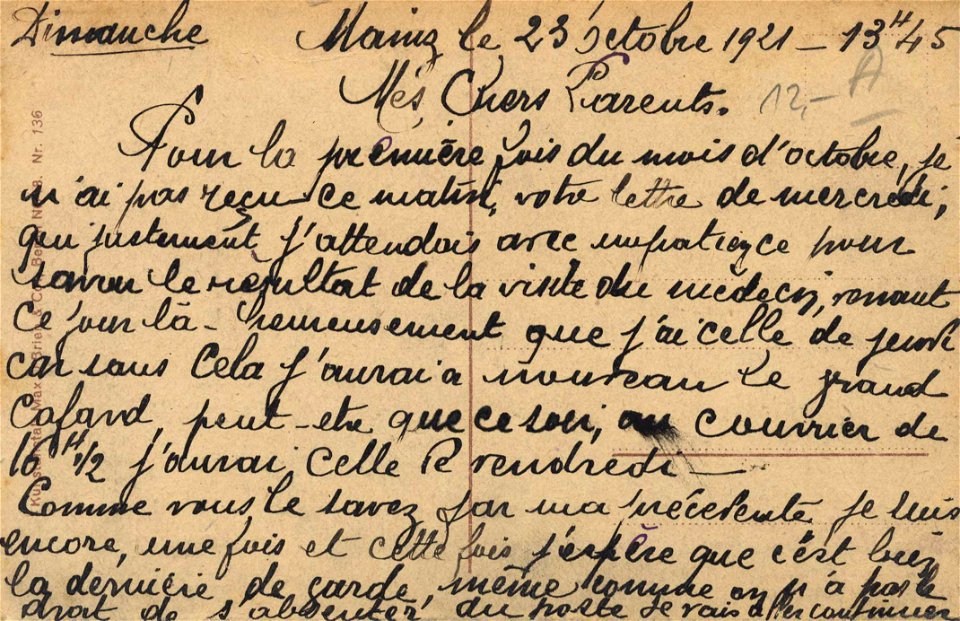 Dimanche Mainz le 23 octobre 1921 - 13H45
Mes Chers Parents.
12,- A
Pour la première fois du mois d'octobre, je
n'ai pas reçu ce matin, votre lettre de mercredi,
qui justement j'attendais avec impatience pour
savoir le résultat de la visite du médecin, venant
ce jour là - heureusement que j'ai celle de jeudi
car sans cela j'aurai à nouveau le grand
Cafard, peut-etre que ce soir, au courrier de
16H1/2 j'aurai celle de vendredi
Comme vous le savez par ma précédente je suis
encore, une fois et cette fois j'espère que c'est bien
la dernière de garde, même comme on n'a pas le
droit de s'absenter du poste je vais continuer
Nr. 136